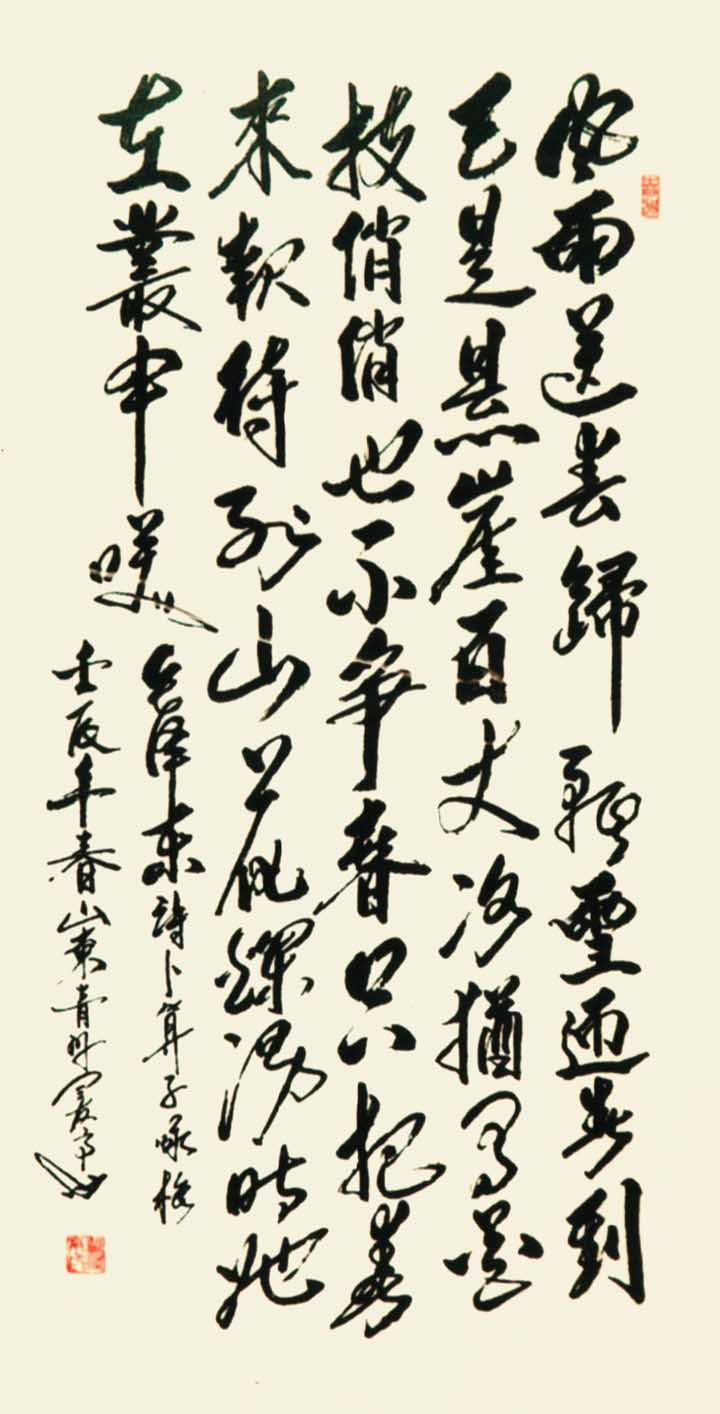 風雨送春歸飛雪迎春到
已是懸崖百丈冰猶有花
枝俏俏也不爭春只把春
來報待到山花爛漫時她
在叢中咲
毛澤東詩卜算子咏梅
壬辰年春山東青州